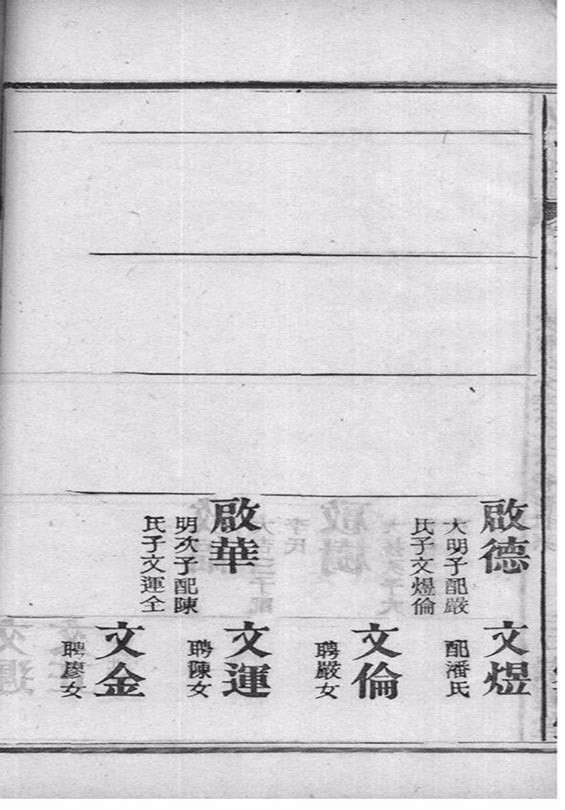 啟德
大明子配嚴
氏子文煜倫
啟華
明次子配陳
氏子文運全
文煜
配潘氏
文倫
聘嚴女
文運
聘陳女
文金
聘廖女